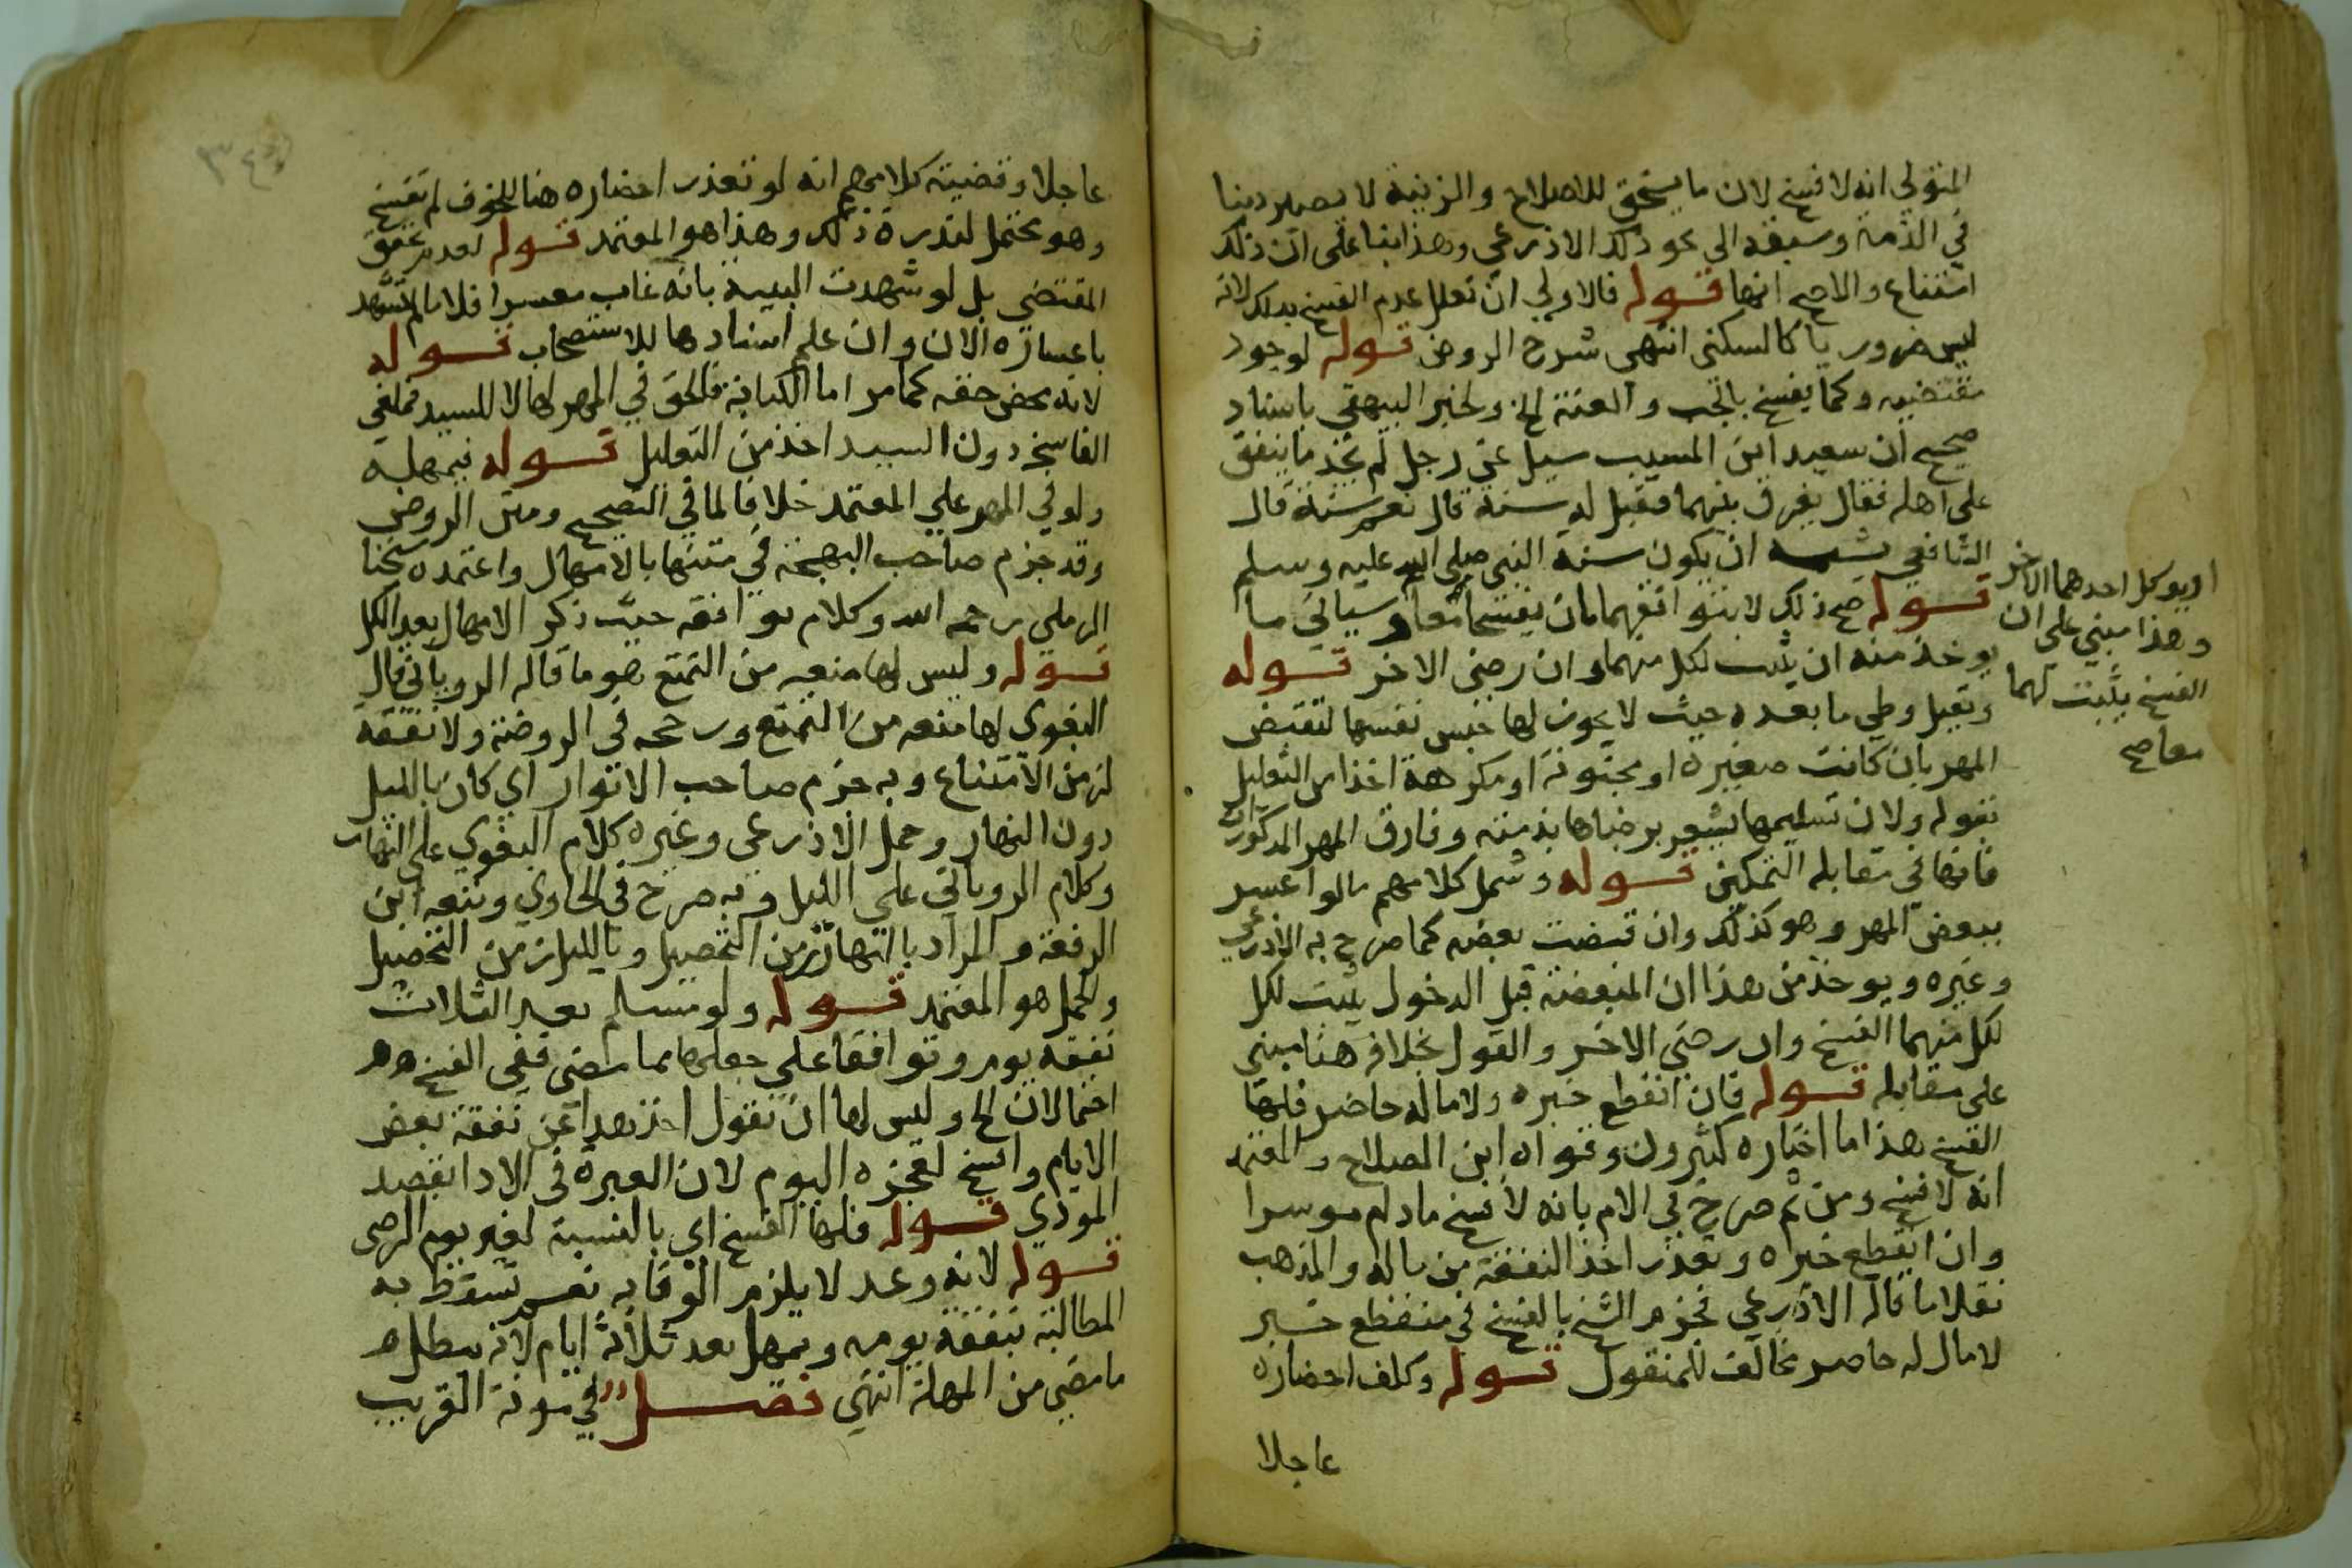 المتولي انه لا فسخ لان ما يستحق للاصلاح والزينة لا يصير دينا
في الذمة وسبقه الي نحو ذلك الاذرعي وهذا بنا على ان ذلك
امتناع والاصح انها قوله فالاولي ان تعلل عدم الفسخ بذلك لانه
ليس ضروريا كالسكنى انتهى شرح الروض قوله لوجود
مقتضيه وكما يفسخ بالجب والعنة الخ ولخبر البيهقي باسناد
صحيح ان سعيد ابن المسيب سيل عن رجل لم يجد ما ينفق
على اهله فقال يفرق بينهما فقيل له سنة قال نعم سنة قال
الشافعي يشبه ان يكون سنة النبي صلى الله عليه وسلم
قوله صح ذلك لا بتوافقهما بان يفسخا معا وسياتي ما
او يوكل احدهما الاخر
وهذا مبني على ان
الفسخ يثبت لهما
معا صح
يوخذ منه ان يثبت لكل منهما وان رضى الاخر قوله
وتقبل وطي ما بعده حيث لا يجوز لها حبس نفسها لتقبض
المهر بان كانت صغيرة او مجنونة او مكرهة اخذا من التعليل
بقوله ولان تسليمها يشعر برضاها بذمته وفارق المهر المذكورات
فانها في مقابلة التمكين قوله وشمل كلامهم ما لو اعسر
ببعض المهر وهو كذلك وان قبضت بعضه كما صرح به الاذرعي
وغيره ويوخذ من هذا ان المبعضة قبل الدخول يثبت لكل
لكل منهما الفسخ وان رضى الاخر والقول بخلافه هنا مبني
على مقابله قوله فان انقطع خبره ولا مال له حاضر فلها
الفسخ هذا ما اختاره كثيرون وقواه ابن الصلاح والمعتمد
انه لا فسخ ومن ثم صرح في الام بانه لا فسخ ما دام موسرا
وان انقطع خبره وتعذر اخذ النفقة من ماله والمذهب
نقلا ما قاله الاذرعي فجزم الشيخ بالفسخ في منقطع خبر
لا مال له حاضر مخالف للمنقول قوله وكلف احضاره
عاجلا
عاجلا وقضية كلامهم انه لو تعذر احضاره هنا للخوف لم تفسخ
وهو محتمل لندرة ذلك وهذا هو المعتمد قوله لعدم تحقق
المقتضى بل لو شهدت البينة بانه غاب معسرا فلا ما لم تشهد
باعساره الان وان علم استنادها للاستصحاب قوله
لانه محض حقه كما مر اما الكتابة فالحق في المهر لها لا للسيد فهي
الفاسخ دون السيد اخذ من التعليل قوله فيمهل به
ولو في المهر علي المعتمد خلافا لما في التصحيح ومتن الروض
وقد جزم صاحب البهجة في متنها بالامهال واعتمده شيخنا
الرملي رحمه الله وكلام يوافقه حيث ذكر الامهال بعد الكل
قوله وليس لها منعه من التمتع هو ما قاله الروياني قال
البغوي لها منعه من التمتع ورجحه في الروضة ولا نفقة
لزمن الامتناع وبه جزم صاحب الانوار اي كان بالليل
دون النهار وحمل الاذرعي وغيره كلام البغوي على النهار
وكلام الروياني علي الليل وبه صرح في الحاوي وتبعه ابن
الرفعة والمراد بالنهار زمن التحصيل وبالليل زمن التحصيل
والحمل هو المعتمد قوله ولو سلم بعد الثلاث
نفقة يوم وتوافقا علي جعلها مما مضى ففي الفسخ
احتمالان الخ وليس لها ان تقول اخذ هذا عن نفقة بعض
الايام وافسخ لعجزه اليوم لان العبرة في الادا بقصد
المودي قوله فلها الفسخ اي بالنسبة لغير يوم الرضى
قوله لانه وعد لا يلزم الوفا به نعم تسقط به
المطالبة بنفقة يومه ويمهل بعد ثلاثة ايام لانه يبطل
ما مضى من المهلة انتهى فصل في مونة القريب